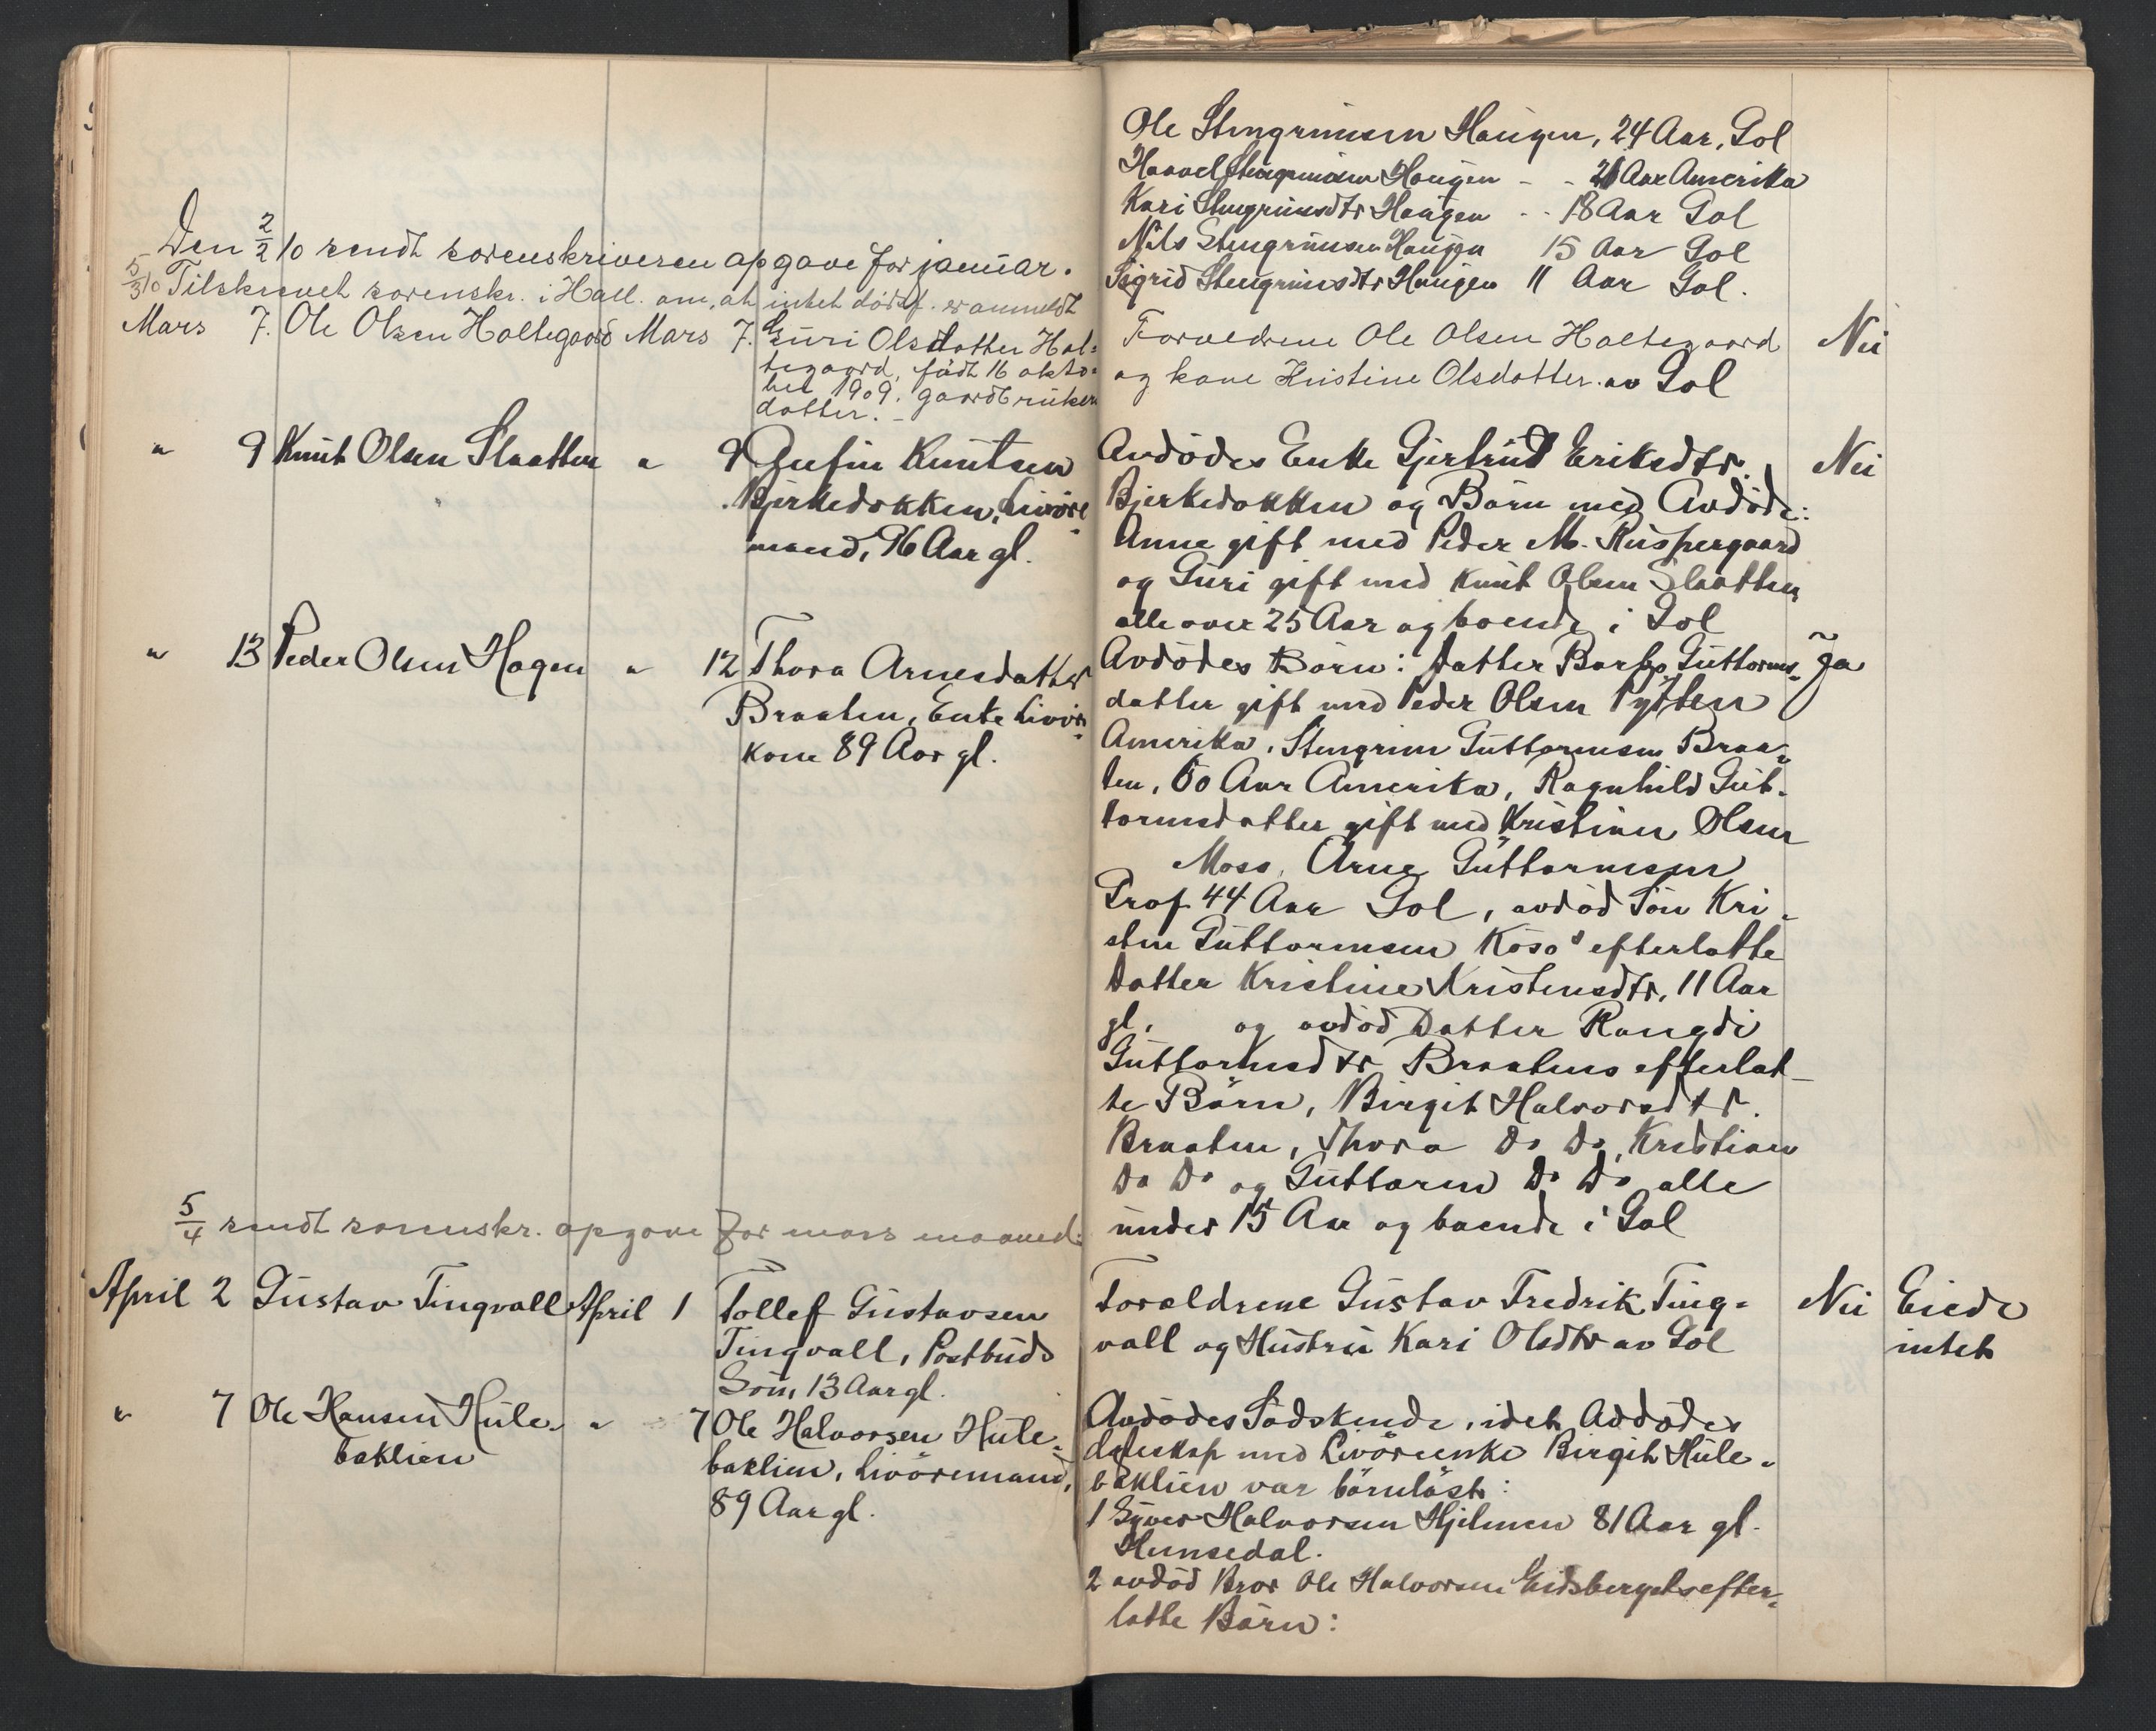 Ole Stengrimsen Haugen, 24 Aar, Gol
Haavel Stengrimsen Haugen - - 21 Aar Amerika
Kari Stengrimsdtr Haugen - - 18 Aar Gol
Nils Stengrimsen Haugen 15 Aar Gol
Sigrid Stengrimsdtr Haugen 11 Aar Gol.
Den 2/2 10 sendt sorenskriveren opgave for januar.
5/3 10 Tilskrevet sorenskr. i Hall. om, at intet dødsf. er anmeldt
Mars 7. Ole Olsen Holtegaard Mars 7. Guri Olsdatter Hol-
tegaard, født 16 okto-
ber 1909. gaardbruker
datter. -
Forældrene Ole Olsen Holtegaard Nei
og kone Kristine Olsdatter av Gol
" 9 Knut Olsen Slaatten " 9 Knutsen
Bjerkedokken, Livøre-
mand, 96 Aar gl.
Avdødes Enke Gjertrud Eriksdtr. Nei
Bjerkedokken og Børn med Avdøde:
Anne gift med Peder M. Ruspergaard
og Guri gift med Knut Olsen Slaatten
alle over 25 Aar og boende i Gol
" 13 Peder Olsen Hagen " 12 Thora Arnesdatter
Braaten, Enke Livør-
kone 89 Aar gl.
Avdødes Børn: Datter Guttorms- Ja
datter gift med Peder Olsen Pytten
Amerika, Stengrim Guttormsen Braa-
ten, 60 Aar Amerika, Ragnhild Gut-
tormsdatter gift med Kristian Olsen
Moss, Arne Guttormsen
Prof 44 Aar Gol, avdød Søn Kri-
sten Guttormsen efterlatte
Datter Kristine Kristensdtr. 11 Aar
gl. og avdød Datter Rangdi
Guttormsdtr Braatens efterlat-
te Børn, Birgit Halvorsdtr.
Braaten, Thora Do Do, Kristian
Do Do og Guttorm Do Do alle
under 15 Aar og boende i Gol
5/4 sendt sorenskr. opgave for mars maaned.
April 2 Gustav Tingvall April 1 Tollef Gustavsen
Tingvall, Postbuds
Søn, 13 Aar gl.
Foreldrene Gustav Fredrik Ting- Nei Eiede
vall og Hustru Kari Olsdtr av Gol intet
" 7 Ole Hansen Hule- " 7 Ole Halvorsen Hule-
baklien baklien, Livøremand,
89 Aar gl.
Avdødes Sødskende, idet Avdødes
med Livørenke Birgit Hule-
baklien var børnløst:
1 Syver Halvorsen Hjelmen 81 Aar gl.
Hemsedal.
2 avdød Bror Ole Halvorsen Eidsbergets efter-
latte Børn: